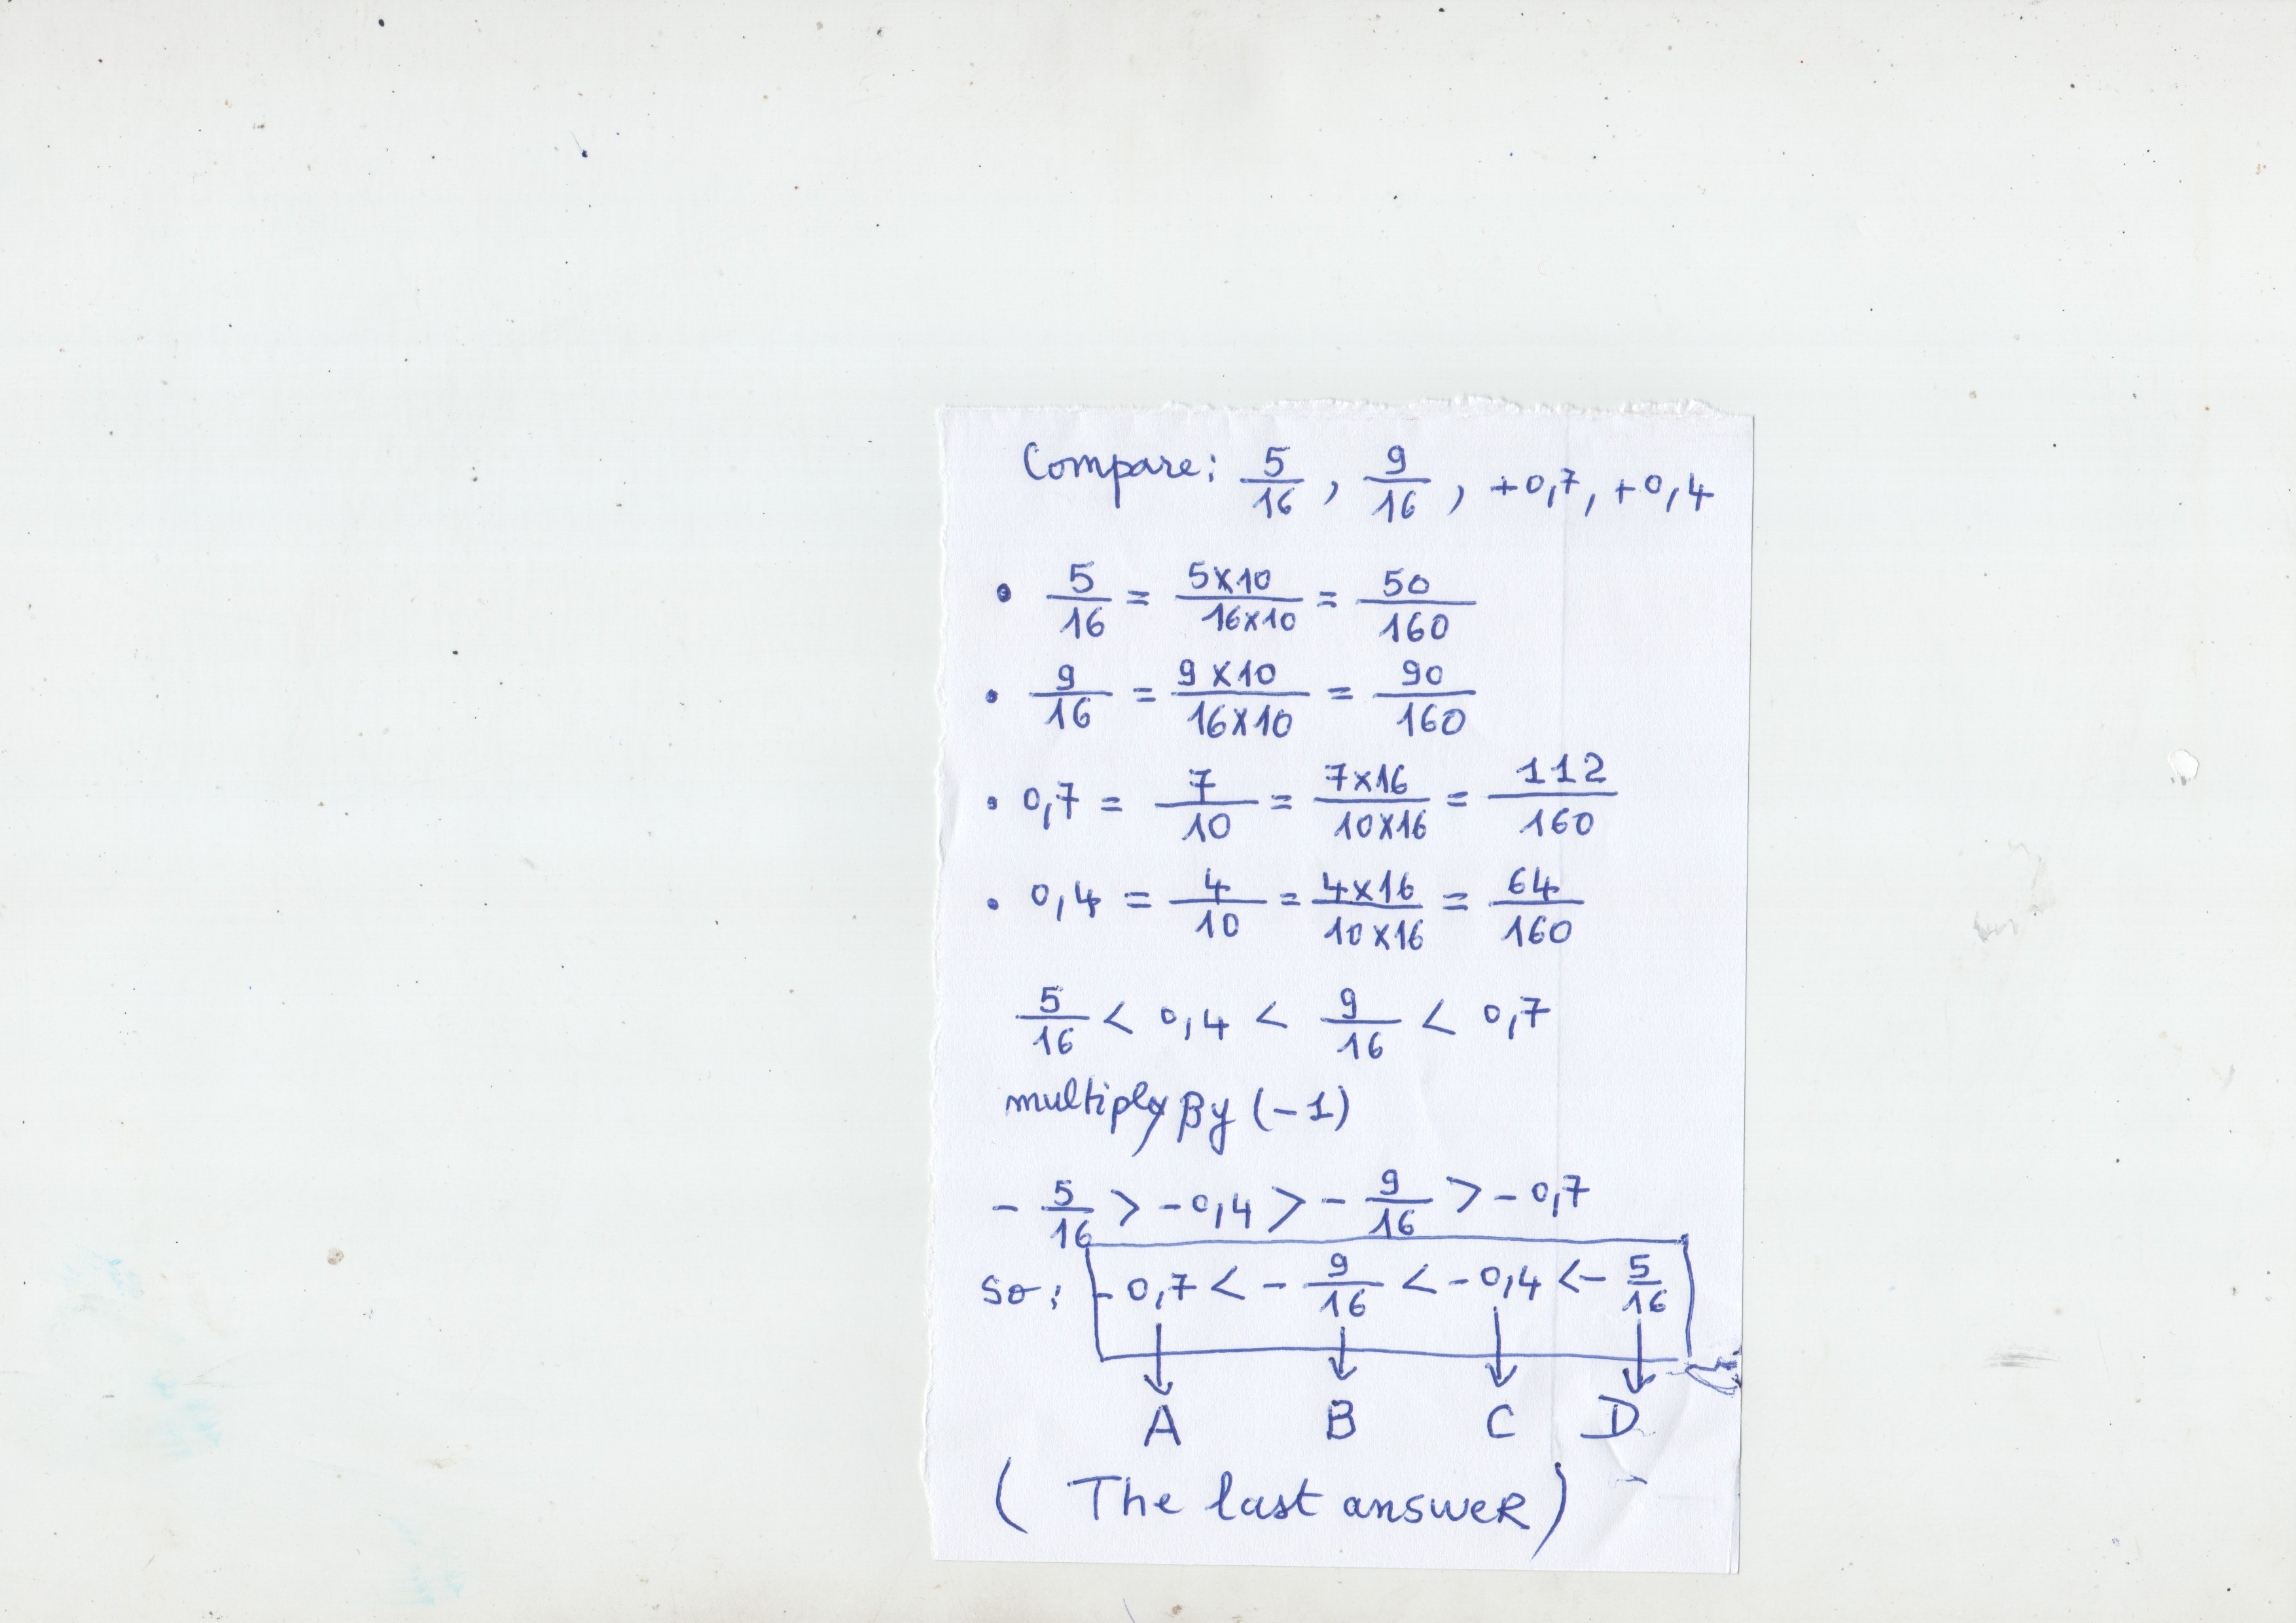 Compare: 5/16, 9/16, +0,7, +0,4
• 5/16 = 5x10/16x10 = 50/160
• 9/16 = 9x10/16x10 = 90/160
• 0,7 = 7/10 = 7x16/10x16 = 112/160
• 0,4 = 4/10 = 4x16/10x16 = 64/160
5/16 < 0,4 < 9/16 < 0,7
multiply By (-1)
- 5/16 > -0,4 > - 9/16 > -0,7
so: -0,7 < - 9/16 < -0,4 < - 5/16
A B C D
( The last answeR )